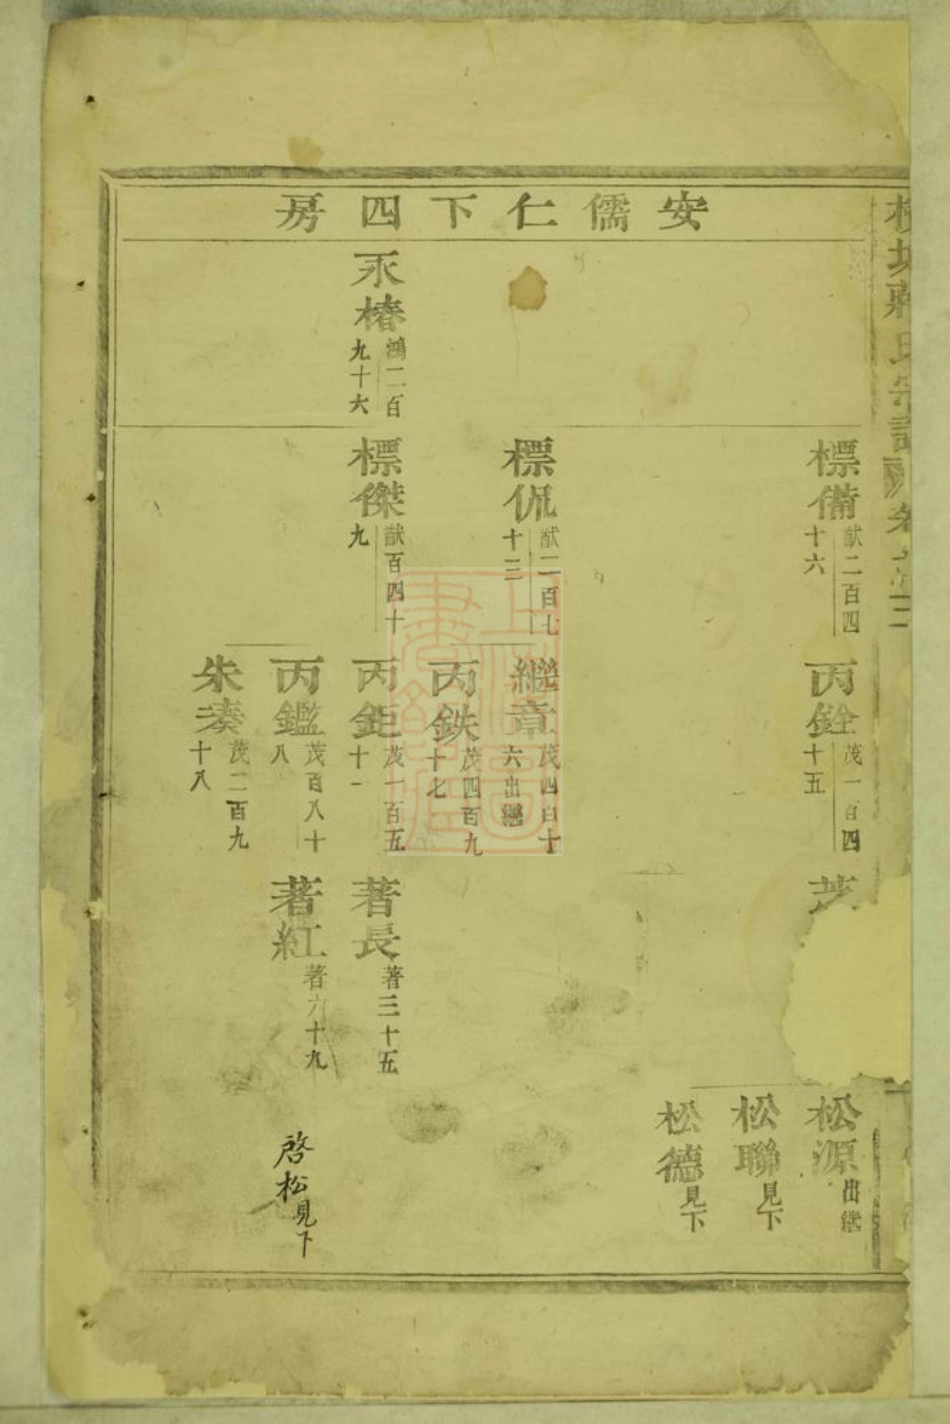 安儒仁下四房
永椿
鴻二百
九十六
標備
猷二百四
十六
標侃
猷二百七
十三
標傑
猷百四十
九
丙銓
茂一百四
十五
繼章
茂四百十
六出繼
丙鉄
茂四百九
十七
丙鉅
茂一百五
十一
丙鑑
茂百八十
八
朱湊
茂二百九
十八
著長
著三十五
著紅
著六十九
松源
出繼
松聯
見下
松德
見下
啓松見下